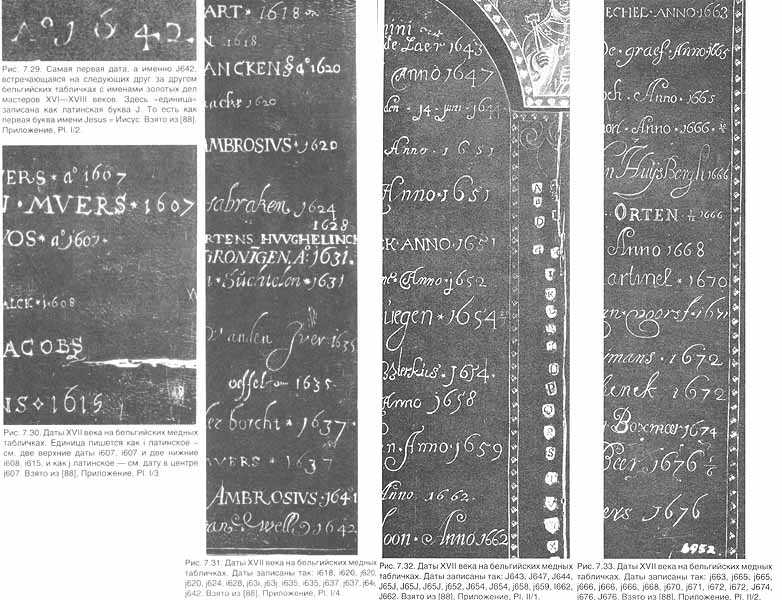 Aº J 6 4 2.
Рис. 7.29. Самая первая дата, а именно J642,
встречающаяся на следующих друг за другом
бельгийских табличках с именами золотых дел
мастеров XVI—XVIII веков. Здесь «единица»
записана как латинская буква J. То есть как
первая буква имени Jesus = Иисус. Взято из [88],
Приложение, Pl. I/2
VERS * aº 1607
MVERS * 1607
VOS * aº 1607
ALCK * 1608
ACOBS
NS 1615
Рис. 7.30. Даты XVII века на бельгийских медных
табличках. Единица пишется как i латинское –
см. две верхние даты i607, i607 и две нижние
i608, i615, и как j латинское — см. дату в центре
j607. Взято из [88], Приложение, Pl. I/3
ART * 1618
N 1618
ANCKEN aº 1620
1620
AMBROSIVS * 1620
abraken 1624
1628
RTENS HVVGHELINCK
GRONIGEN, Aº 1631.
Züchtelen * 1631
anden 1635
oeffel 1635
er borcht * 1637
VVERS * 1637
AMBROSIVS * 1641
1642
Рис. 7.31. Даты XVII века на бельгийских медных
табличках. Даты записаны так: i618, i620, i620,
j620, j624, i628, j63i, j63j, i635, i635, j637, j637, j64i,
j642. Взято из [88], Приложение, Pl. I/4
mini
de Laer 1643
Anno 1647
14 1644
Anno 1651
Anno 1651
CK ANNO 1651
Anno 1652
uegen * 1654
1654
Anno 1658
Anno 1659
Anno 1662
oon Anno 1662
Рис. 7.32. Даты XVII века на бельгийских медных
табличках. Даты записаны так: J643, J647, J644,
J65J, J65J, J65J, j652, J654, J654, j658, j659, I662,
J662. Взято из [88], Приложение, Pl. II/1.
ECHEL ANNO 1663
de graef Anno 1665
och Anno 1665
Anno 1666 ½
HuijsBergh 1666
ORTEN ½ 1666
Anno 1668
artinel * 1670
1671
mans 1672
henck 1672
Boxmaer 1674
Beer 1676
ers 1676
6952.
Рис. 7.33. Даты XVII века на бельгийских медных
табличках. Даты записаны так: j663, j665, j665,
j666, j666, j666, j668, j670, j671, j672, j672, J674,
j676, J676. Взято из [88], Приложение, Pl. II/2.